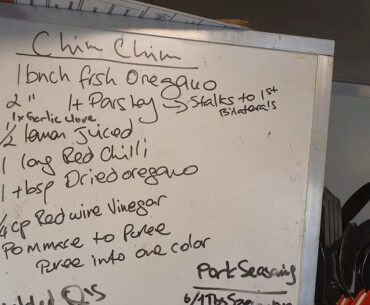 Chim Chim
1 bnch fish Oregano
2 " It Parsley → Stalks to 1st Bilaterals
1x Garlic clove
1/2 lemon Juiced
1 long Red Chilli
1 tbsp Dried oregano
1/4 cp Red wine Vinegar
Pommace to Puree
Puree into one color
Pork Seasoning